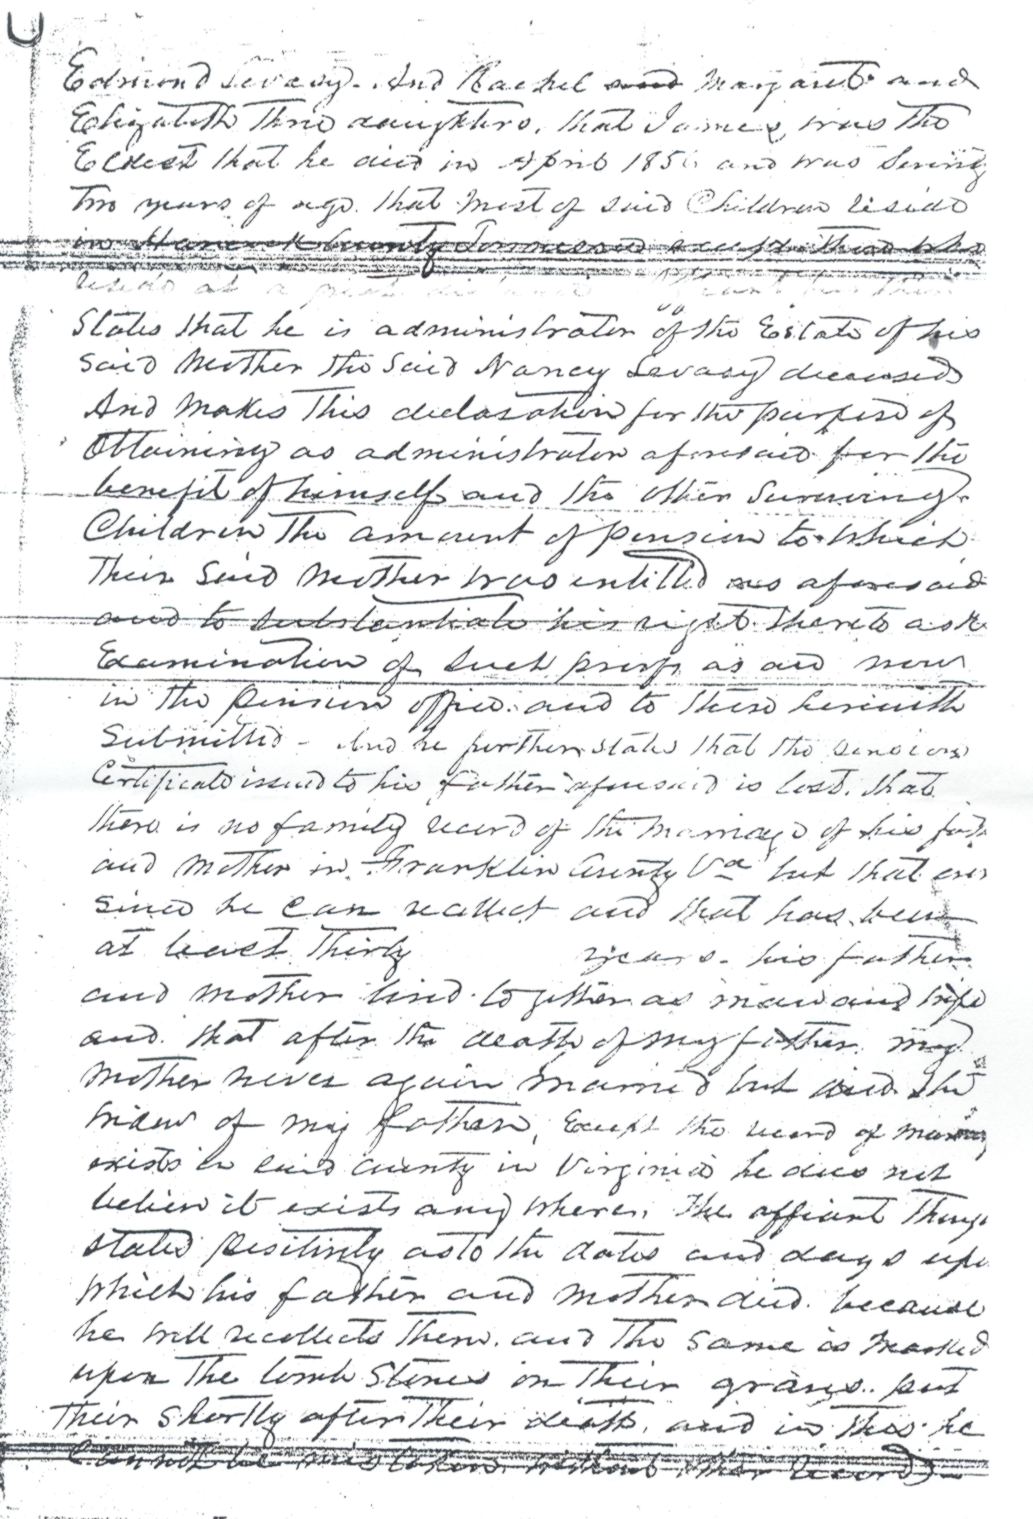 Edmond Levacy. And Rachel and Margaret and
Elizabeth Three daughters. that James, was the
Eldest that he died in April 185 and was Seventy
Two years of age. that most of said Children reside
in Hancock County Tennessee except those who
reside at a
States that he is administrator of the Estate of his
said Mother the said Nancy Levacy deceased
And makes this declaration for the purpose of
Obtaining as administrator aforesaid for the
benefit of himself and the other Surviving
Children the amount of pension to which
their said Mother was entitled as aforesaid
and to substantiate his right thereto asks
Examination of such proofs as are now
in the pension office and to these herewith
Submitted - And he further states that the pension
Certificate issued to his father aforesaid is lost. that
there is no family record of the marriage of his
and mother in Franklin County Va but that ever
since he can recollect and that has been
at least Thirty years. his father
and mother lived together as man and wife
and that after the death of my father my
Mother never again married but died the
widow of my father, Except the record of marriage
exists in said county in Virginia he does not
believe it exists any where. The affiant
states positively as to the dates and days upon
which his father and mother died. because
he well recollects them. and the same is marked
upon the tomb stones on their graves. put
their shortly after their death. and in this he
Cannot be mistaken without other record.